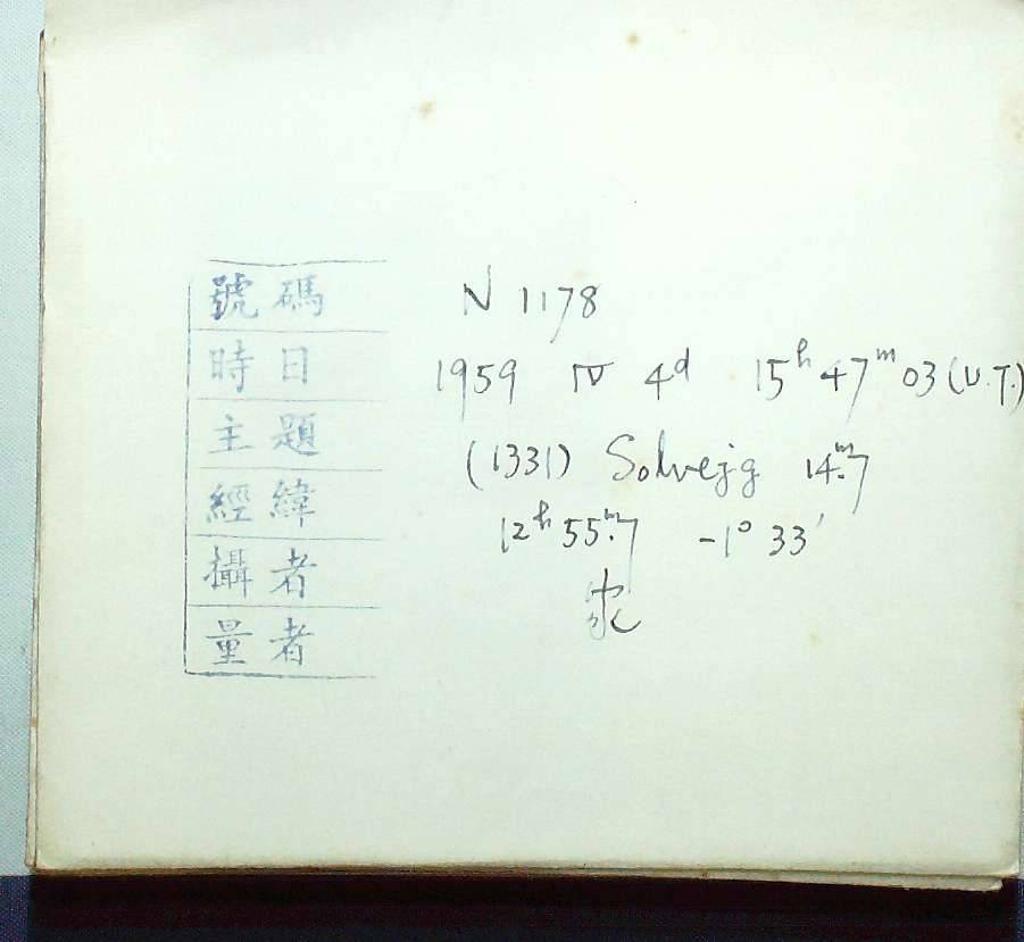 號碼 N 1178
時日 1959 IV 4ᵈ 15ʰ 47ᵐ 03 (U.T.)
主題 (1331) Solvejg 14ᵐ.7
經緯 12ʰ 55ᵐ.7 -1° 33′
攝者
量者